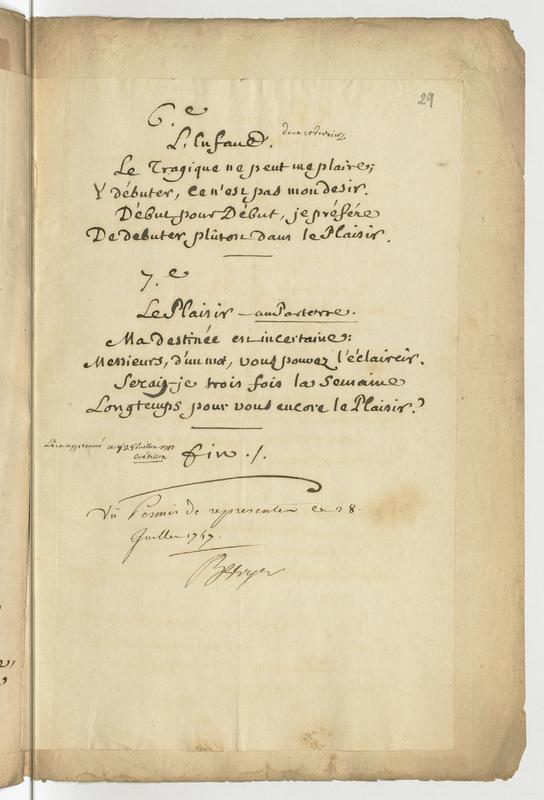 29
6.e
L'Enfant.
Le Tragique ne peut me plaire;
Y débuter, ce n'est pas mon desir.
Début pour Début, je préfére
De debuter plûtôt dans le Plaisir.
7.e
Le Plaisir – au Parterre.
Ma destinée est incertaine:
Messieurs, d'un mot, vous pouvez l'éclaircir.
Serai-je trois fois la Semaine
Longtemps pour vous encore le Plaisir?
fin./.
Crébillon
Vû Permis de representer ce 28.
Juillet 1747.
Berryer